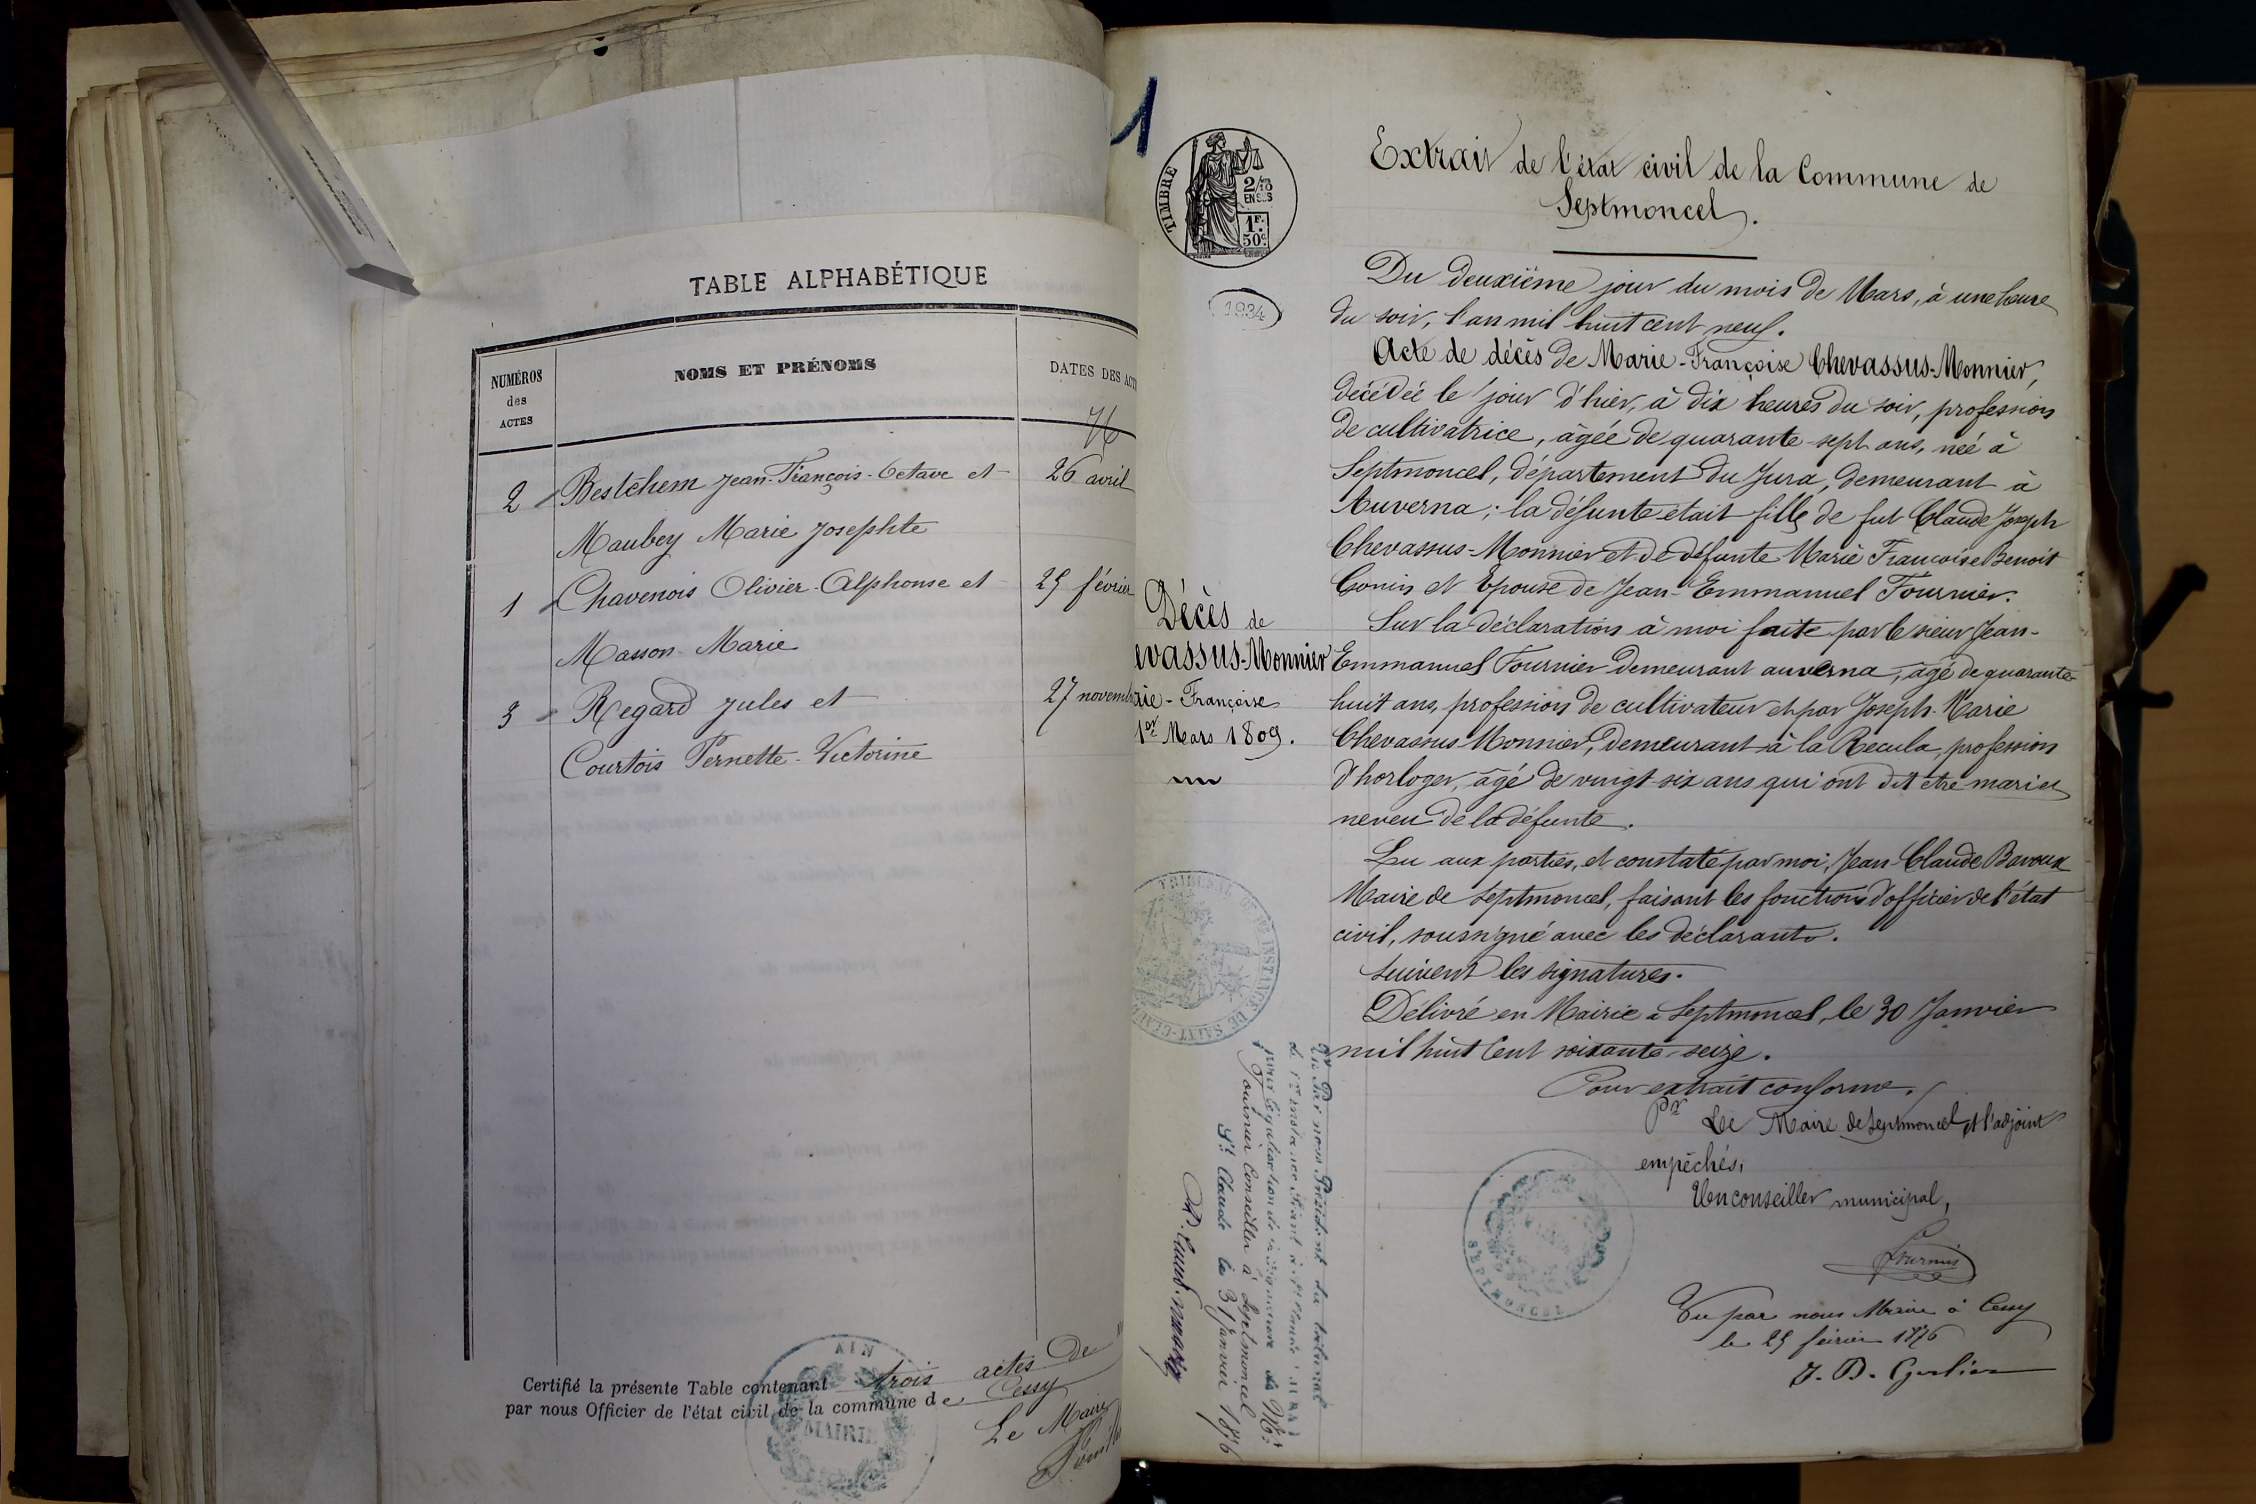 TABLE ALPHABÉTIQUE
NUMÉROS
des
ACTES
NOMS ET PRÉNOMS
DATES DES ACT
76
2 Bestchem Jean-François-Octave et 26 avril
Maubey Marie Josephte
1 Chavenois Olivier-Alphonse et 29 février
Masson Marie
3 Regard Jules et 27 novemb
Courtois Pernette-Victorine
Certifié la présente Table contenant trois actes de
par nous Officier de l'état civil de la commune de Cessy
Le Maire
AIN
MAIRIE
1
TIMBRE
2/10
EN SUS
1F.
50c
1934
Extrait de l'état civil de la Commune de
Septmoncel.
Du deuxième jour du mois de Mars, à une heure
du soir, l'an mil huit cent neuf.
Acte de décès de Marie-Françoise Chevassus-Monnier,
décédée le jour d'hier, à dix heures du soir, profession
de cultivatrice, âgée de quarante-sept ans, née à
Septmoncel, département du Jura, demeurant à
Auverna; la défunte était fille de fut Claude Joseph
Chevassus-Monnier et de défunte Marie Françoise Benoit
Gonin et Epouse de Jean-Emmanuel Fournier.
Sur la déclaration à moi faite par le sieur Jean-
Emmanuel Fournier demeurant auverna, âgé de quarante
huit ans, profession de cultivateur et par Joseph-Marie
Chevassus Monnier, demeurant à la Recula, profession
d'horloger, âgé de vingt-six ans qui ont dit être mari et
neveu de la défunte.
Lu aux parties, et constaté par moi, Jean-Claude Bavoux
Maire de Septmoncel, faisant les fonctions d'officier de l'état
civil, soussigné avec les déclarants.
suivent les signatures.
Délivré en Mairie a Septmoncel, le 30 Janvier
mil huit Cent soixante-seize.
Pour extrait conforme.
Pr Le Maire de Septmoncel et l'adjoint
empêchés,
Un conseiller municipal,
Fournier
Vu par nous Maire à Cessy
le 29 février 1876
Décès de
evassus-Monnier
rie-Françoise
1er Mars 1809.
TRIBUNAL DE 1RE INSTANCE DE SAINT-CLAUDE
SEPTMONCEL
Vu Par nous Président du tribunal
de 1re instance séant à St Claude (JURA)
pour légalisation de la signature de Mr
Fournier Conseiller à Septmoncel
St Claude le 31 Janvier 1876